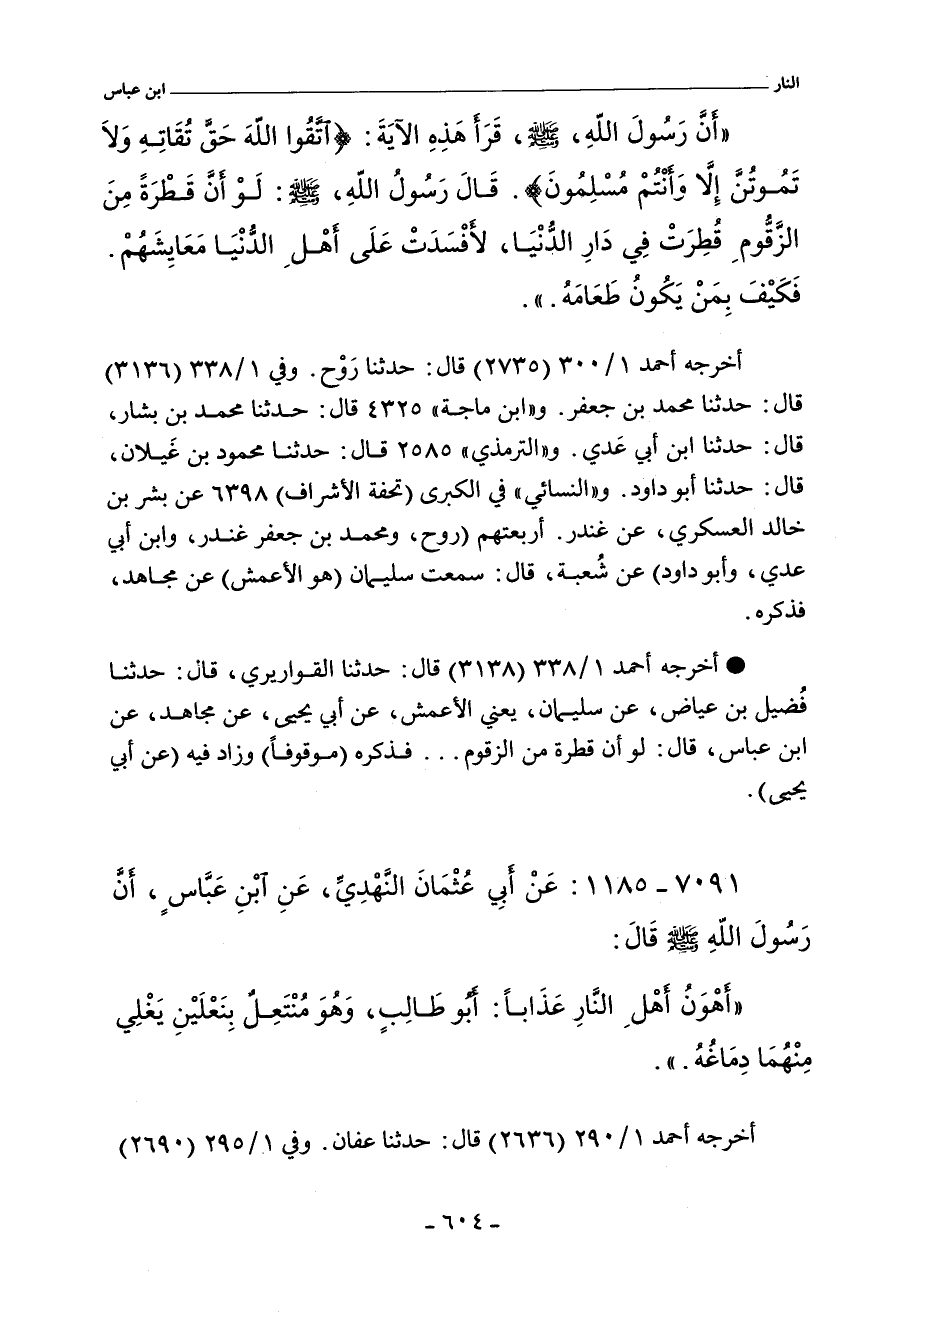 النار ـــــــــ ابن عباس
«أَنَّ رَسُولَ اللّهِ، ﷺ، قَرَأَ هَذِهِ الآيَةَ: ﴿آتَّقُوا اللّهَ حَقَّ تُقَاتِهِ وَلاَ
تَمُوتُنَّ إِلَّا وَأَنْتُمْ مُسْلِمُونَ﴾. قَالَ رَسُولُ اللّهِ، ﷺ: لَوْ أَنَّ قَطْرَةً مِنَ
الزَّقُّومِ قُطِرَتْ فِي دَارِ الدُّنْيَا، لأَفْسَدَتْ عَلَى أَهْلِ الدُّنْيَا مَعَايِشَهُمْ.
فَكَيْفَ بِمَنْ يَكُونُ طَعَامَهُ.».
أخرجه أحمد ١/ ٣٠٠ (٢٧٣٥) قال: حدثنا رَوْح. وفي ١/ ٣٣٨ (٣١٣٦)
قال: حدثنا محمد بن جعفر. و«ابن ماجة» ٤٣٢٥ قال: حدثنا محمد بن بشار،
قال: حدثنا ابن أبي عَدي. و«الترمذي» ٢٥٨٥ قال: حدثنا محمود بن غَيلان،
قال: حدثنا أبو داود. و«النسائي» في الكبرى (تحفة الأشراف) ٦٣٩٨ عن بشر بن
خالد العسكري، عن غندر. أربعتهم (روح، ومحمد بن جعفر غندر، وابن أبي
عدي، وأبو داود) عن شُعبة، قال: سمعت سليمان (هو الأعمش) عن مجاهد،
فذكره.
● أخرجه أحمد ١/ ٣٣٨ (٣١٣٨) قال: حدثنا القواريري، قال: حدثنا
فُضيل بن عياض، عن سليمان، يعني الأعمش، عن أبي يحيى، عن مجاهد، عن
ابن عباس، قال: لو أن قطرة من الزقوم... فذكره (موقوفاً) وزاد فيه (عن أبي
يحيى).
٧٠٩١ - ١١٨٥: عَنْ أَبِي عُثْمَانَ النَّهْدِيِّ، عَنِ آبْنِ عَبَّاسٍ، أَنَّ
رَسُولَ اللّهِ ﷺ قَالَ:
«أَهْوَنُ أَهْلِ النَّارِ عَذَاباً: أَبُو طَالِبٍ، وَهُوَ مُنْتَعِلٌ بِنَعْلَيْنِ يَغْلِي
مِنْهُمَا دِمَاغُهُ.».
أخرجه أحمد ١/ ٢٩٠ (٢٦٣٦) قال: حدثنا عفان. وفي ١/ ٢٩٥ (٢٦٩٠)
- ٦٠٤ -